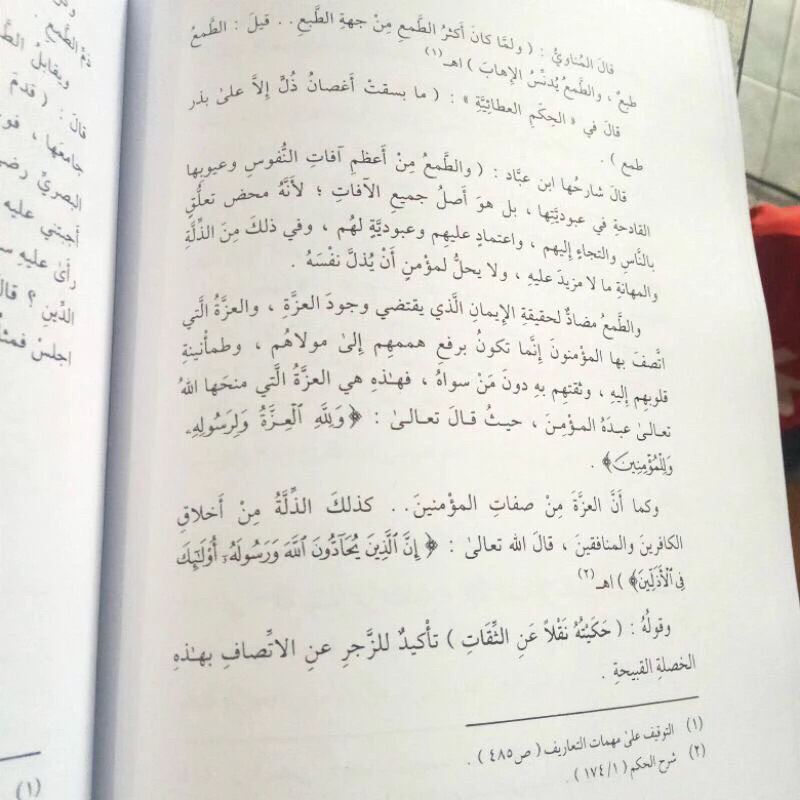 قالَ المُناويُّ : ( ولمَّا كانَ أكثرُ الطَّمعِ مِنْ جهةِ الطَّبعِ . . قيلَ : الطَّمعُ
طبعٌ ، والطَّمعُ يُدنِّسُ الإِهابَ ) اهـ(١)
قالَ في « الحِكَمِ العطائِيَّةِ » : ( ما بسقتْ أغصانُ ذُلٍّ إلاَّ علىٰ بذرِ
طمع ) .
قالَ شارحُها ابن عبَّاد : ( والطَّمعُ مِنْ أَعظمِ آفاتِ النُّفوسِ وعيوبِها
القادحةِ في عبوديَّتِها ، بل هوَ أَصلُ جميعِ الآفاتِ ؛ لأنَّهُ محض تعلُّقٍ
بالنَّاسِ والتجاءٍ إليهم ، واعتمادٍ عليهِم وعبوديَّةٍ لهُم ، وفي ذلكَ مِنَ الذِّلَّةِ
والمهانةِ ما لا مزيدَ عليهِ ، ولا يحلُّ لمؤمنٍ أَنْ يُذلَّ نفْسَهُ .
والطَّمعُ مضادٌّ لحقيقةِ الإيمانِ الَّذي يقتضي وجودَ العزَّةِ ، والعزَّةُ الَّتي
اتَّصفَ بها المؤمنونَ إنَّما تكونُ برفعِ هممِهِم إلىٰ مولاهُم ، وطمأْنينةِ
قلوبِهم إليهِ ، وثقتِهم بهِ دونَ مَنْ سواهُ ، فهـٰذهِ هي العزَّةُ الَّتي منحَها اللهُ
تعـالـىٰ عبـدَهُ المـؤمـنَ ، حيـثُ قـالَ تعـالـىٰ : ﴿ وَلِلَّهِ الْعِـزَّةُ وَلِرَسُولِهِۦ
وَلِلْمُؤْمِنِينَ ﴾ .
وكما أَنَّ العزَّةَ مِنْ صفاتِ المؤْمنينَ . . كذلكَ الذِّلَّةُ مِنْ أَخلاقِ
الكافرينَ والمنافقينَ ، قالَ الله تعالىٰ : ﴿ إِنَّ ٱلَّذِينَ يُحَآدُّونَ ٱللَّهَ وَرَسُولَهُۥٓ أُوْلَـٰٓئِكَ
فِى ٱلْأَذَلِّينَ ﴾ ) اهـ(٢)
وقولُهُ : ( حَكَيْتُهُ نَقْلاً عَنِ الثِّقَاتِ ) تأْكيدٌ للزَّجرِ عنِ الاتِّصافِ بهـٰذهِ
الخصلةِ القبيحةِ .
(١) التوقيف علىٰ مهمات التعاريف ( ص٤٨٥ ) .
(٢) شرح الحكم ( ١/ ١٧٤ ) .
الطَّمعِ
ويقابلُ
قالَ : ( قدمَ
جامعَها ، فو
البصريُّ رضي
أجبتني عليهِ
رأىٰ عليهِ س
الدِّينِ ؟ قالَ
اجلسْ فمثل
(١)